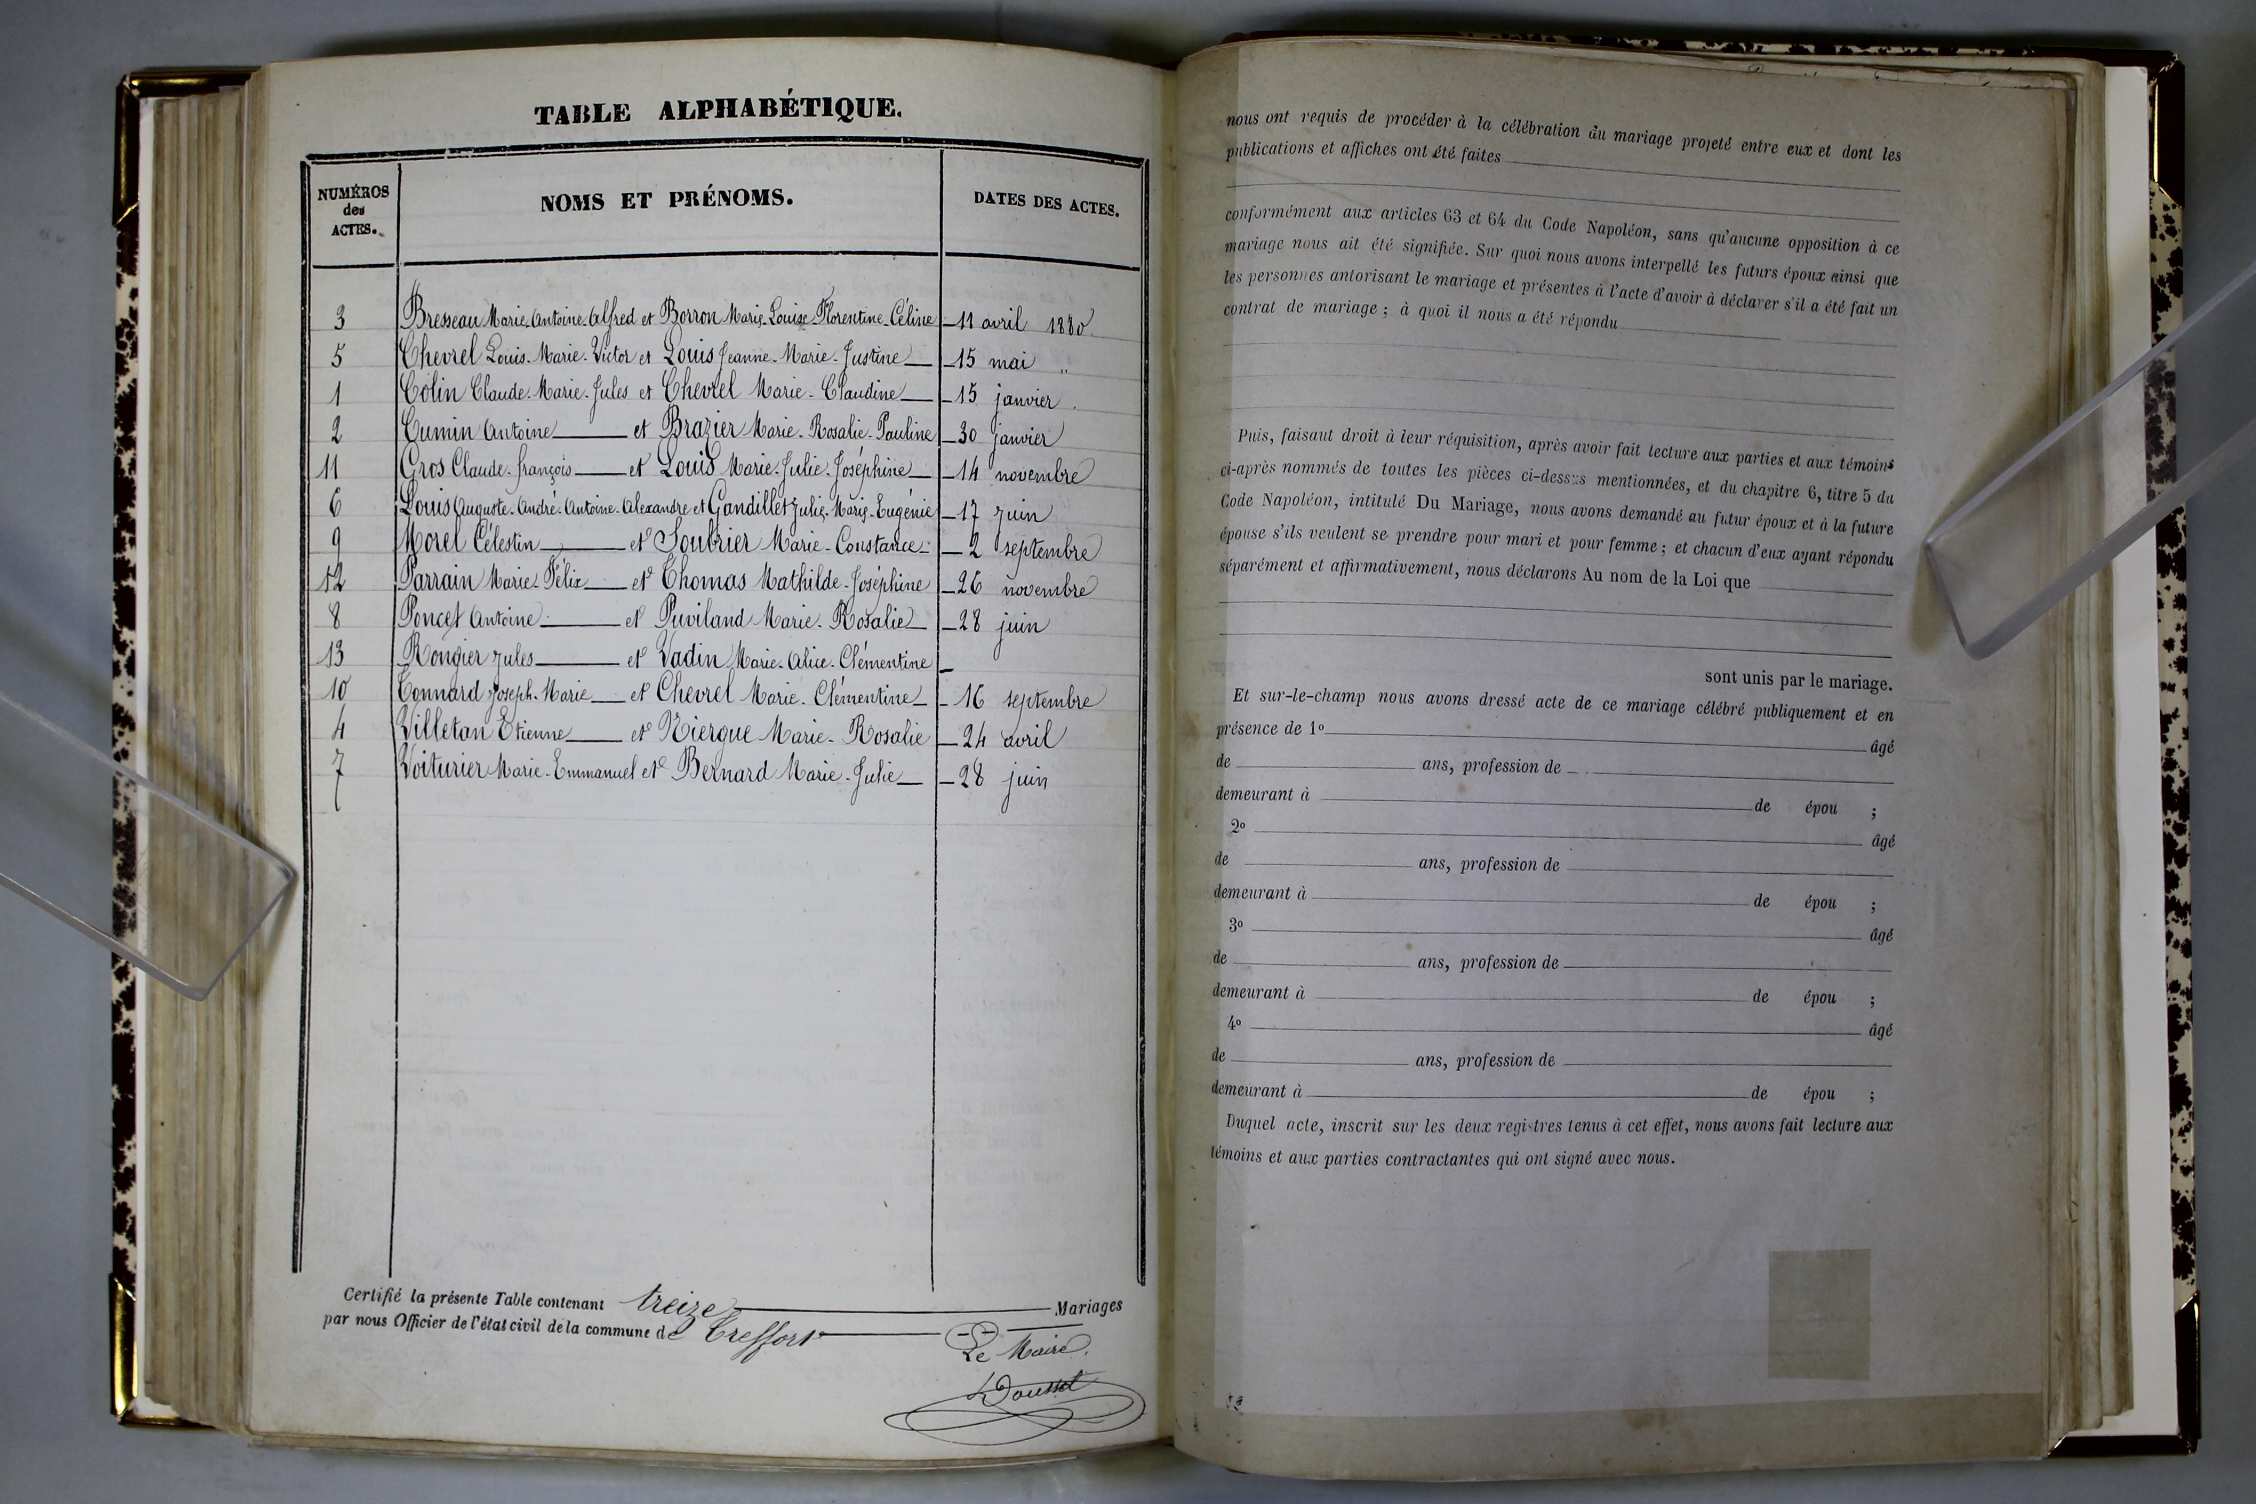 TABLE ALPHABÉTIQUE.
NUMÉROS des ACTES.
NOMS ET PRÉNOMS.
DATES DES ACTES.
3 Bresseau Marie-Antoine-Alfred et Borron Marie-Louise-Florentine-Céline — 11 avril 1880
5 Chevrel Louis-Marie-Victor et Louis Jeanne-Marie-Justine — 15 mai "
1 Colin Claude-Marie-Jules et Chevrel Marie-Claudine — 15 janvier
2 Cumin Antoine — et Brazier Marie-Rosalie-Pauline — 30 janvier
11 Gros Claude-françois — et Louis Marie-Julie-Joséphine — 14 novembre
6 Louis Auguste-André-Antoine-Alexandre et Gandillet Julie-Marie-Eugénie — 17 juin
9 Morel Célestin — et Soubrier Marie-Constance — 2 septembre
12 Parrain Marie-Félix — et Thomas Mathilde-Joséphine — 26 novembre
8 Poncet Antoine — et Puviland Marie-Rosalie — 28 juin
13 Rongier Jules — et Vadin Marie-Alice-Clémentine —
10 Tonnard Joseph-Marie — et Chevrel Marie-Clémentine — 16 septembre
4 Villetan Etienne — et Niergue Marie-Rosalie — 24 avril
7 Voiturier Marie-Emmanuel et Bernard Marie-Julie — 28 juin
Certifié la présente Table contenant treize — Mariages
par nous Officier de l'état civil de la commune de Treffort —
Le Maire.
Dousset
nous ont requis de procéder à la célébration du mariage projeté entre eux et dont les
publications et affiches ont été faites
conformément aux articles 63 et 64 du Code Napoléon, sans qu'aucune opposition à ce
mariage nous ait été signifiée. Sur quoi nous avons interpellé les futurs époux ainsi que
les personnes autorisant le mariage et présentes à l'acte d'avoir à déclarer s'il a été fait un
contrat de mariage ; à quoi il nous a été répondu
Puis, faisant droit à leur réquisition, après avoir fait lecture aux parties et aux témoins
ci-après nommés de toutes les pièces ci-dessus mentionnées, et du chapitre 6, titre 5 du
Code Napoléon, intitulé Du Mariage, nous avons demandé au futur époux et à la future
épouse s'ils veulent se prendre pour mari et pour femme ; et chacun d'eux ayant répondu
séparément et affirmativement, nous déclarons Au nom de la Loi que
sont unis par le mariage.
Et sur-le-champ nous avons dressé acte de ce mariage célébré publiquement et en
présence de 1º âgé
de ans, profession de
demeurant à de épou ;
2º âgé
de ans, profession de
demeurant à de épou ;
3º âgé
de ans, profession de
demeurant à de épou ;
4º âgé
de ans, profession de
demeurant à de épou ;
Duquel acte, inscrit sur les deux registres tenus à cet effet, nous avons fait lecture aux
témoins et aux parties contractantes qui ont signé avec nous.